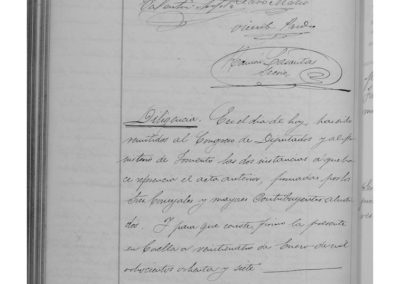 Valentín
Vicente
Ramón
Diligencia. En el dia de hoy, han sido
remitidos al Congreso de Diputados y al
misterio de Fomento las dos instancias a que ha-
ce referencia el acta anterior, firmadas por los
Sres Concejales y mayores Contribuyentes aludi-
dos. Y para que conste, firmo la presente
en Cuellar a veinticuatro de Enero de mil
ochocientos ochenta y siete